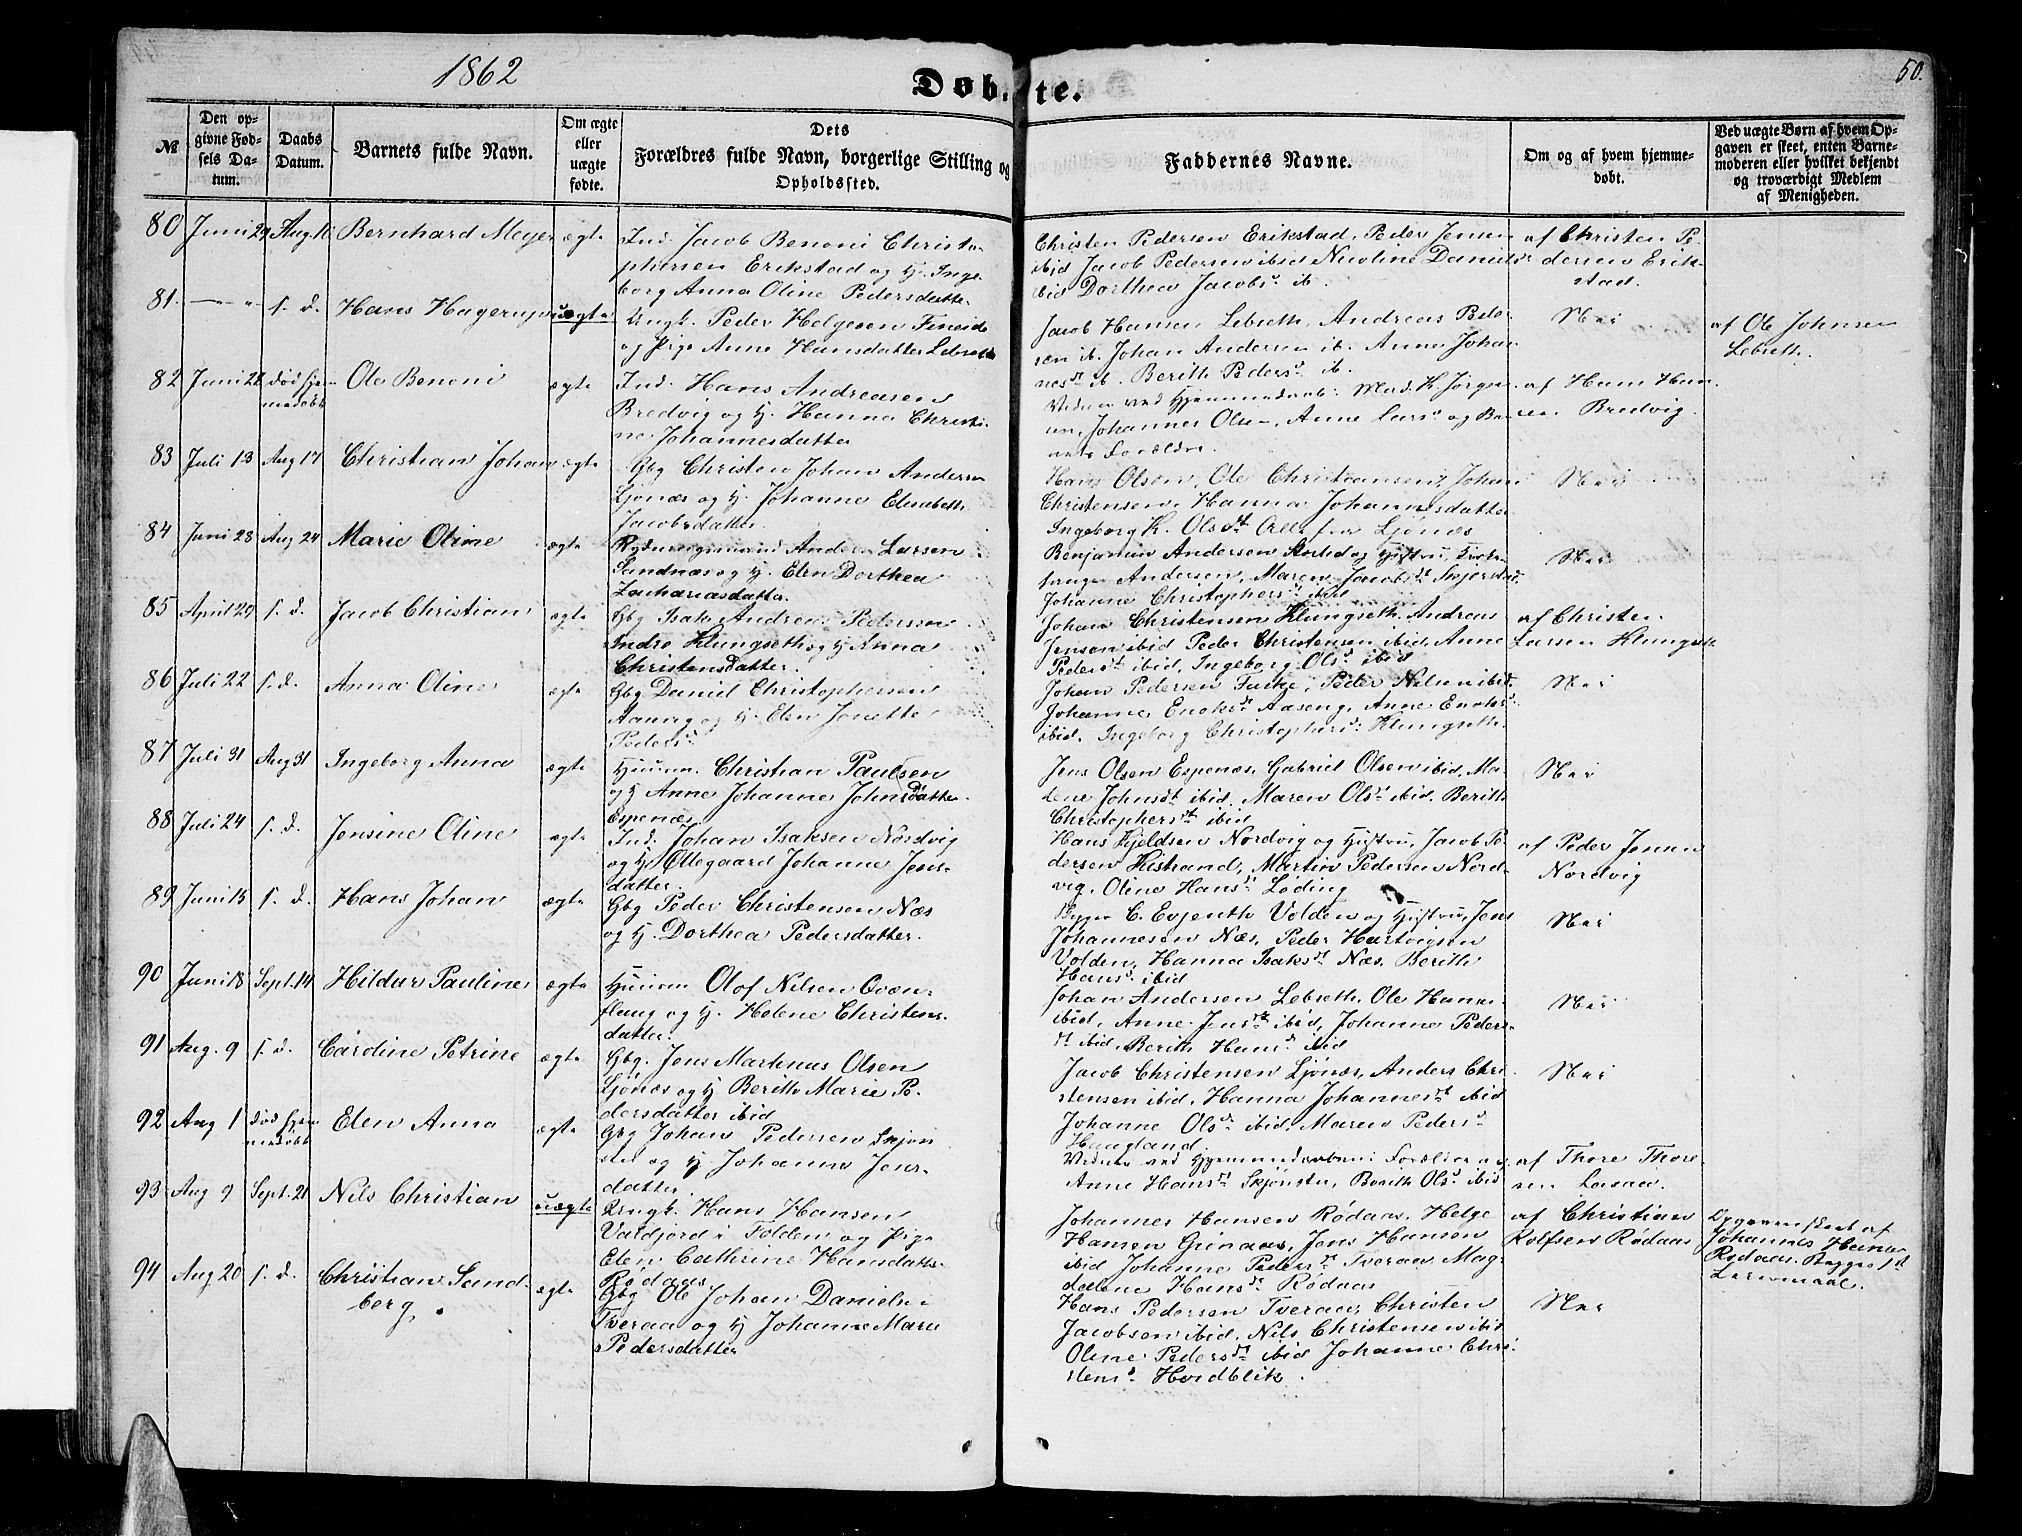 1862
Døbte.
50.
№
Den opgivne Fødsels Datum.
Daabs Datum.
Barnets fulde Navn.
Om ægte eller uægte fødte.
Dets Forældres fulde Navn, borgerlige Stilling og Opholdssted.
Faddernes Navne.
Om og af hvem hjemmedøbt.
Ved uægte Børn af hvem Opgaven er skeet, enten Barnemoderen eller hvilket bekjendt og troværdigt Medlem af Menigheden.
80 Juni 29 Aug. Bernhard Meyer ægte
Ind. Jacob Benoni Christo-
phersen Erikstad og H. Inge-
borg Anna Oline Pedersdatter
Christen Pedersen Erikstad, Peder Jensen
ibid Jacob Pedersen ibid Nicoline Daniels
ibid Dorthea Jacobs ib.
af Christen Pe-
dersen Erik-
stad.
81. — " s. d. Hans Hagerup uægte
Ungk. Peder Helgesen Fineide
og Pige Anne Hansdatter Lebseth
Jacob Hansen Lebseth, Andreas Peder-
sen ib. Johan Andersen ib. Anne Johan-
nesdt ib. Berith Peders ib.
Nei
af Ole Johnsen
Lebseth.
82 Juni død hjem-
medøbt Ole Benoni ægte
Ind. Hans Andreasen
Bredvig og H. Hanna Christi-
ne Johannesdatter
Vidner ved Hjemmedaab: Mad. K. Jørgen-
sen, Johannes Olsen, Anne Lars og Bar-
nets Forældre.
af Hans Han-
sen Bredvig
83 Juli 13 Aug 17 Christian Johan ægte
Gbg Christen Johan Andersen
Ljønæs og H. Johanne Elisabeth
Jacobsdatter.
Hans Olsen, Ole Christiansen, Johan
Christensen, Hanna Johannesdatter
Ingeborg K. Olsdt Alle fra Ljønæs
Nei
84 Juni 23 Aug 24 Marie Oline ægte
Rydningsmand Anders Larsen
Sandnæs og H. Elen Dorthea
Zachariasdatter.
Benjamin Andersen og Hustru,
Andersen, Maren Jacobsdt
Johanne Christophers ibid
Nei
85 April 29 s. d. Jacob Christian ægte
Gbg Isak Andreas Pedersen
Indre Klungseth og H Anna
Christensdatter.
Johan Christensen Klungseth, Andreas
Jensen ibid Peder Christensen ibid, Anne
Pedersdt ibid, Ingeborg Ols ibid
af Christen
Larsen Klungseth
86 Juli 22 s. d. Anna Oline ægte
Gbg Daniel Christophersen
og H. Elen Jonette
Peders
Johan Pedersen Fuske, Peder Nilsen ibid.
Johanne Enoks Aaseng, Anne Enoks
ibid. Ingeborg Christophers Klungseth
Nei
87 Juli 31 Aug 31 Ingeborg Anna ægte
Christian Paulsen
og H Anne Johanne Johnsdatter
Espenæs
Jens Olsen Espenæs, Gabriel Olsen ibid, Ma-
lene Johnsdt ibid. Maren Ols ibid. Berith
Christophersdt ibid
Nei
88 Juli 24 s. d. Jensine Oline ægte
Ind. Johan Isaksen Nordvig
og H Ollegaard Johanne Jens-
datter.
Hans Kjeldsen Nordvig og Hustru, Jacob Pe-
dersen Hestrand, Martin Pedersen Nord-
vig, Oline Hans Løding
af Peder Jensen
Nordvig
89 Juni 15 s. d. Hans Johan ægte
Gbg Peder Christensen Næs
og H. Dorthea Pedersdatter.
C. Evjenth Volden og Hustru, Jens
Johannesen Næs, Peder Hartvigsen
Volden, Hanna Isaksdt Næs, Berith
Hans ibid
Nei
90 Juni 18 Sept. 14 Hildur Pauline ægte
Olof Nilsen Qvæn-
flaug og H. Helene Christens-
datter.
Johan Andersen Lebseth, Ole Hansen
ibid, Anne Jensdt ibid, Johanne Peders-
dt ibid, Berith Hans ibid
Nei
91 Aug. 9 s. d. Caroline Petrine ægte
Gbg. Jens Martinus Olsen
Ljønæs og H Berith Marie Pe-
dersdatter ibid
Jacob Christensen Ljønæs, Anders Chri-
stensen ibid, Hanna Johannesdt ibid
Johanne Ols ibid. Maren Peders
Haugland
Nei
92 Aug 1 død hjem-
medøbt Elen Anna ægte
Gbg Johan Pedersen Skjøn-
stu og H Johanne Jens-
datter.
Vidner ved Hjemmedaaben: Forældre og
Anne Hans Skjønstu, Berith Ols ibid
af Thore Thore-
sen
93 Aug 9 Sept. 21 Nils Christian uægte
Ungk. Hans Hansen
Valdjord i Folden og Pige
Elen Cathrine Hansdatter
Rødaas
Johannes Hansen Rødaas, Helge
Hansen Grønaas, Jens Hansen
ibid Johanne Peders Tveraa Mag-
dalene Hans Rødaas
af Christian
Rolfsen Rødaas
Opgaven skeet af
Johannes Hansen
Rødaas. Begges 1st
Leiermaal.
94 Aug 20 s. d. Christian Sand-
berg. ægte
Gbg Ole Johan Danielsen
Tveraa og H Johanne Marie
Pedersdatter
Hans Pedersen Tveraa, Christen
Jacobsen ibid, Nils Christensen ibid
Oline Pedersdt ibid Johanne Chri-
stens Hvidblik.
Nei